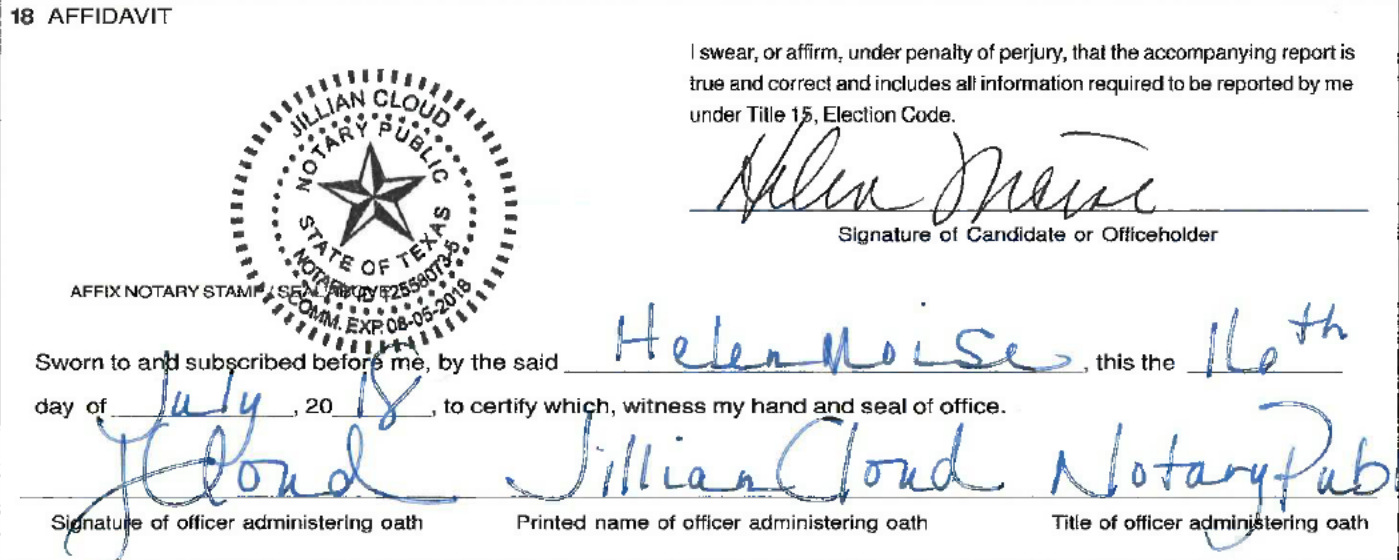 18 AFFIDAVIT
I swear, or affirm, under penalty of perjury, that the accompanying report is
true and correct and includes all information required to be reported by me
under Title 15, Election Code.
JILLIAN CLOUD
NOTARY PUBLIC
STATE OF TEXAS
NOTARY ID 12558073-5
COMM. EXP. 08-05-2018
Helen Moise
Signature of Candidate or Officeholder
AFFIX NOTARY STAMP / SEAL ABOVE
Sworn to and subscribed before me, by the said Helen Moise, this the 16th
day of July, 20 18, to certify which, witness my hand and seal of office.
JCloud Jillian Cloud Notary Pub
Signature of officer administering oath Printed name of officer administering oath Title of officer administering oath